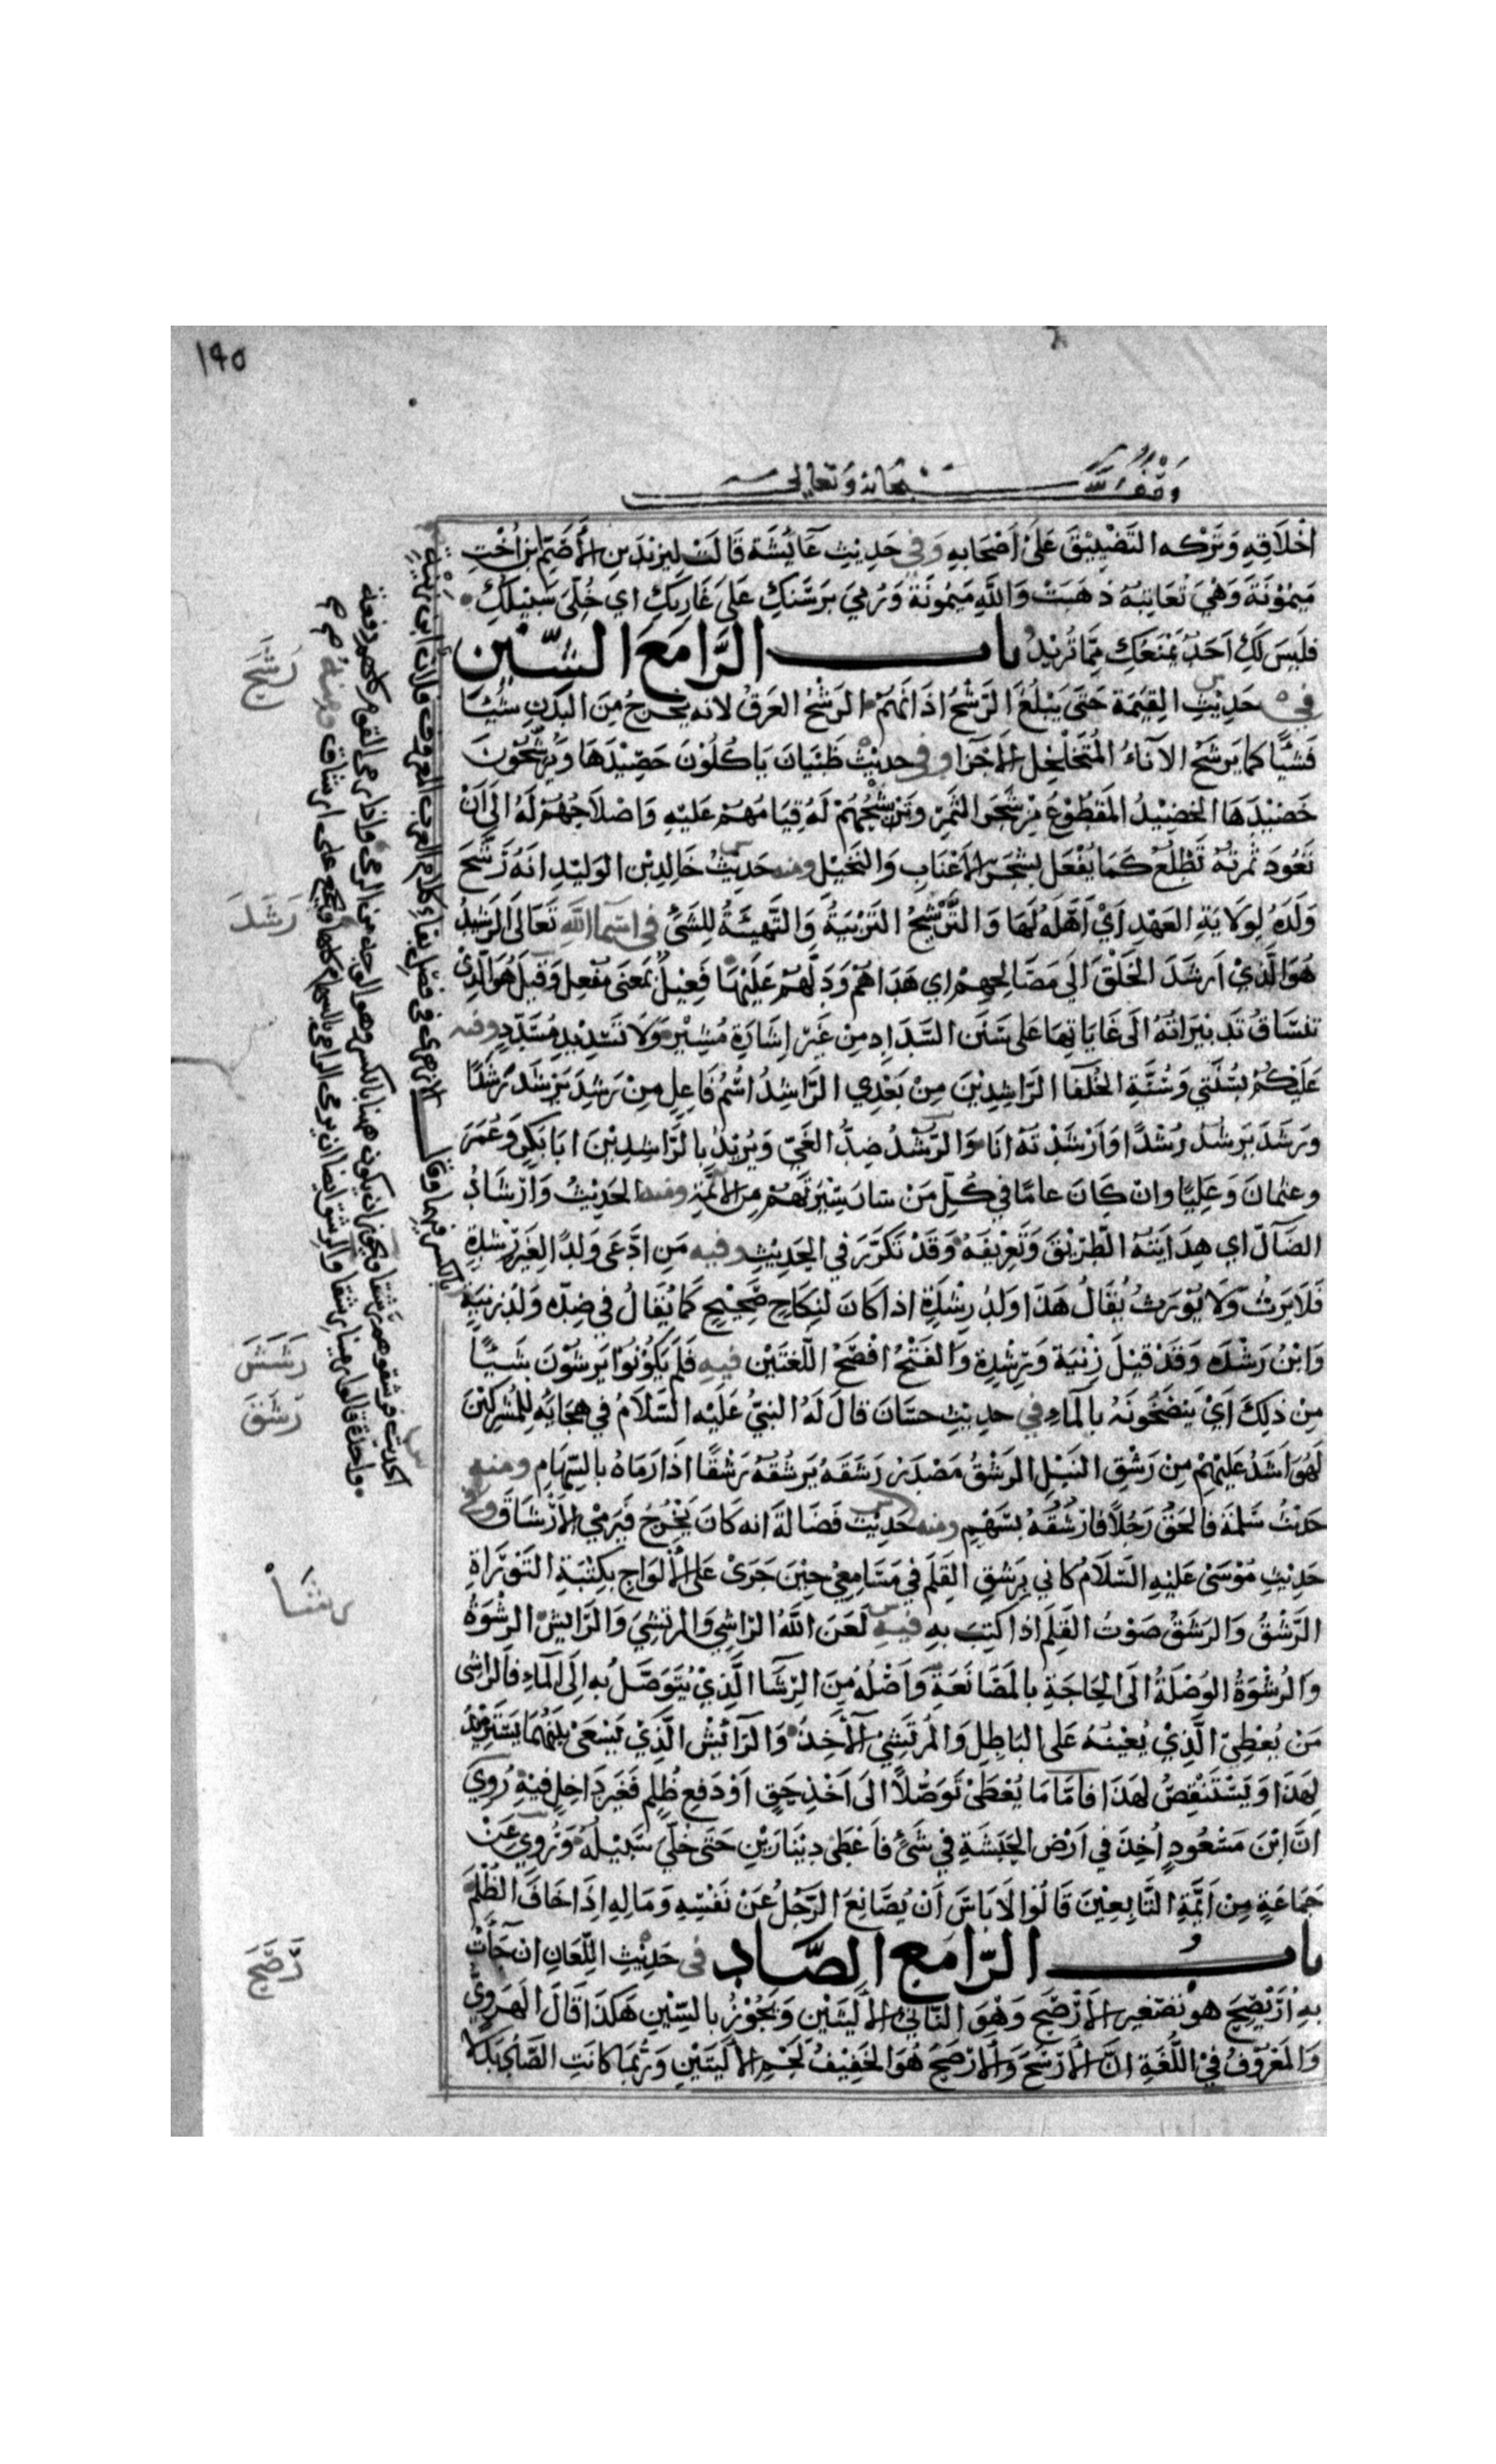 ١٩٥
وقف لله سبحانه وتعالى
اَخْلَاقِهِ وَتَرْكه التَضْيِيْقَ عَلَىْ اَصْحَابِهِ وَفي حَدِيْثِ عَآئِشَة قَالَتْ لِيَزِيْدَ بن الأَصَمِّ ابن اُخْتِ
مَيْمُوْنَةَ وَهْيَ تُعَاتِبُهُ ذهَبَتْ وَاللَّهِ مَيْمُونَةُ وَرُمِيَ بِرَسَنِكِ عَلَى غَارِبِكِ اي خُلِّيَ سَبِيْلكِ
فلَيسَ لَكِ اَحَدٌ يَمْنَعُكِ مِمَّا تُرِيْدُ باب الرَّاء مَعَ الشِّين
في حَدِيْثِ القِيٰمَة حَتىَ يَبْلُغَ الرَشْحُ اٰذَانَهُمْ الرَشْحُ العَرَقُ لانه يخرجُ مِنَ البَدَنِ شَيْئًا
فَشيْئًا كما يَرشَح الآناءُ المُتَخَلْخِل الأجْزَاءِ وفي حديْث ظَبْيَانَ يَاكُلُوْنَ حَصِيْدَهَا وَيُرَشّحُوْنَ
خَضِيْدَهَا الخضِيْدُ المَقطُوْعُ مِنْ شَجَرِ الثمَرِ وتَرْشِيحُهُمْ لَهُ قِيَامُهُمْ عَلَيْهِ وَاصْلَاحُهُمْ لَهُ الَى اَنْ
تَعُودَ ثمرتهُ تَطْلُع كَمَا يُفْعَل بشَجَرِ الاَعْنَابِ وَالنَخيْل ومنه حَدِيْثُ خَالِدِ بْنِ الوَلِيْدِ اَنهُ رَشَّحَ
وَلَدَهُ لِوِلَايَةِ العَهْدِ اَيْ اَهَّلَهُ لَهَا وَالتَّرْشِيْحُ التَرْبِيَةُ وَالتَّهْيِئَةُ لِلشَىْءِ في اسْمَاءِ اللَّهِ تَعَالَى الرَشِيْدُ
هُوَ الَّذِيْ اَرشَدَ الخَلْقَ الَى مَصَالِحِهِمْ اي هَدَاهُمْ وَدَلَّهُمْ عَلَيْهَا فَعِيْلٌ بَمَعْنَى مُفْعِل وَقيْلَ هُوَ الَّذِيْ
تنْسَاقُ تدبيْرَاتُهُ الَى غَايَاتِهَا عَلَى سَنَنِ السَّدَادِ مِنْ غَيْرِ اِشَارَةِ مُشِيْرٍ وَلَا تَسْدِيْدِ مُسَدِّدٍ وفيه
عَلَيْكُمْ بسُنَّتِي وَسُنَّةِ الخُلَفَاءِ الرَّاشِدِيْنَ مِنْ بَعْدِي الرَّاشِدُ اسْمُ فَاعِلٍ مِنْ رَشِدَ يَرْشَد رَشَدًا
ورَشَدَ يَرشُدُ رُشْدًا وَاَرْشَدْتهُ اَنَا وَالرّشْدُ ضِدُّ الغَيِّ وَيُرِيْدُ بِالرَّاشِدِيْنَ ابَا بَكرٍ وَعُمَرَ
وعثمانَ وَعَلِيًّا وانْ كَانَ عامًّا في كُلِّ مَنْ سَارَ سِيْرَتَهُمْ مِنَ الأئمَّةِ ومنه الحَدِيْثُ وَارْشَادُ
الضَآلّ اي هِدَايَتهُ الطَّرِيْقَ وَتَعْرِيْفَهُ وَقَدْ تَكَرَّرَ في الحَدِيْثِ وفيه مَنِ ادَّعَى وَلدًا لِغَيْرِ رِشْدَةٍ
فَلَا يَرِثُ وَلَا يُوْرَثُ يُقَالُ هَذَا وَلدُ رِشْدَةٍ اذا كَانَ لنِكَاحٍ صَحِيْحٍ كَمَا يُقَالُ في ضِدِّه وَلَدُ زِنيَةٍ
وَابْنُ رَشْدَه وَقَدْ قيْلَ زِنْيَة وَرِشْدِة وَالفَتْحُ افْصَحُ اللّغَتَيْن فيه فَلَمْ يَكُوْنُوْا يَرشُوْنَ شَيْئًا
مِن ذلِكَ اَيْ يَنضَحُونَهُ بالمَاءِ في حديثِ حسَّانَ قالَ لَهُ النبِيُّ عَلَيْه السَّلَامُ في هِجَائِه لِلمُشرِكِيْنَ
لَهُوَ اَشَدُّ عَلَيْهِمْ مِنْ رَشْقِ النَبْلِ الرشْقُ مَصْدَر رَشَقَهُ يَرشُقُهُ رَشْقًا اذَا رَمَاهُ بالسِّهَامِ ومنه
حَديْثُ سَلَمَة فاَلحَقُ رَجُلاً فارْشُقُهُ بسَهْمٍ ومنه حَدِيْثُ فَضَالَةَ انه كَانَ يَخْرُجُ فَيَرْمِي الاَرْشَاقَ وفي
حَدِيْثِ مُوْسَىْ عَلَيْهِ السَّلَامُ كاني بِرَشْقِ القَلَم في مَسَامِعِيْ حِيْنَ جَرَىْ عَلَى الأَلوَاحِ بكِتْبَةِ التَّوْرَاةِ
الرَّشْقُ وَالرَشَقُ صَوْتُ القَلَم اذا كتِبَ بهِ فيه لَعَنَ اللهُ الرَاشِيَ وَالمرتَشِيَ وَالرَايِشَ الرشْوَةُ
وَالرُشْوَةُ الوُصْلَةُ الَى الحَاجَةِ بالمَصَانَعَة وَاصْلُهُ مِنَ الرِّشَا الَّذِيْ يُتَوَصَّلُ بهِ اِلَى المَاءِ فالرَاشِى
مَنْ يُعْطِيْ الَّذِيْ يُعيْنُهُ عَلى البَاطِلِ وَالمُرتَشِيْ الآَخِذُ وَالرَآئِشُ الَّذِيْ يَسْعَىْ بَيْنَهُمَا يَسْتَزِيْدُ
لِهَذَا وَيَسْتَنْقِصُ لِهَذَا فاَمَّا مَا يُعْطَىْ تَوَصُّلاً الَى اَخْذِ حَقٍ اَوْ دَفعِ ظُلمٍ فَغَير دَاخِلٍ فيْهِ رُوِيَ
اَنَّ ابْنَ مَسْعُودٍ اُخِذَ في اَرْض الحَبَشَةِ في شَىءٍ فاَعْطَى دِيْنَارَيْنِ حَتَى خُلِّيَ سَبِيْلُهُ وَرُوِيَ عَنْ
جَمَاعَةٍ مِنْ اَئِمَّةِ التَّابِعِيْنَ قَالُوْا لَا بَاسَ اَنْ يُصَانِعَ الرَّجُلُ عَنْ نَفْسِهِ وَمَالِهِ اِذَا خَافَ الظُلْمَ
بابُ الرّاء مع الصَّاد في حَدِيْثِ اللِّعَانِ ان جَآءَتْ
بِهِ اُرَيْصِحَ هو تصْغير الاَرْصَحِ وَهْوَ النَّاتىءُ الأَليتَيْنِ وَيَجُوْزُ بالسِّيْنِ هَكَذَا قَالَ الهَرَوِي
وَالمَعْرُوْفُ في اللُّغَةِ اَنَّ الأَرْسَحَ وَالأَرْصَحَ هُوَ الخَفِيْفُ لحْمِ الأَليَتَيْنِ وَرُبَّمَا كَانَتِ الصَّادُ بَدَلًا
رَشَحَ
رَشَدَ
رَشَشَ
رَشَقَ
رشَاْ
رَصَحَ
بالكسر فيهما وقال الازهرى في فصل بغاء كلام العرب المعروف فلان ابن زنية
الحديث فرشقوهم رشقا ويجوز ان يكون ههنا بالكسر وهو الوجه من الرمى واذا رمى القوم كلهم دفعة
واحدة قالوا رمينا رشقا والرشق ايضا ان يرمى الرامى بالسهام كلها ويجمع على ارشاق ومنه صح